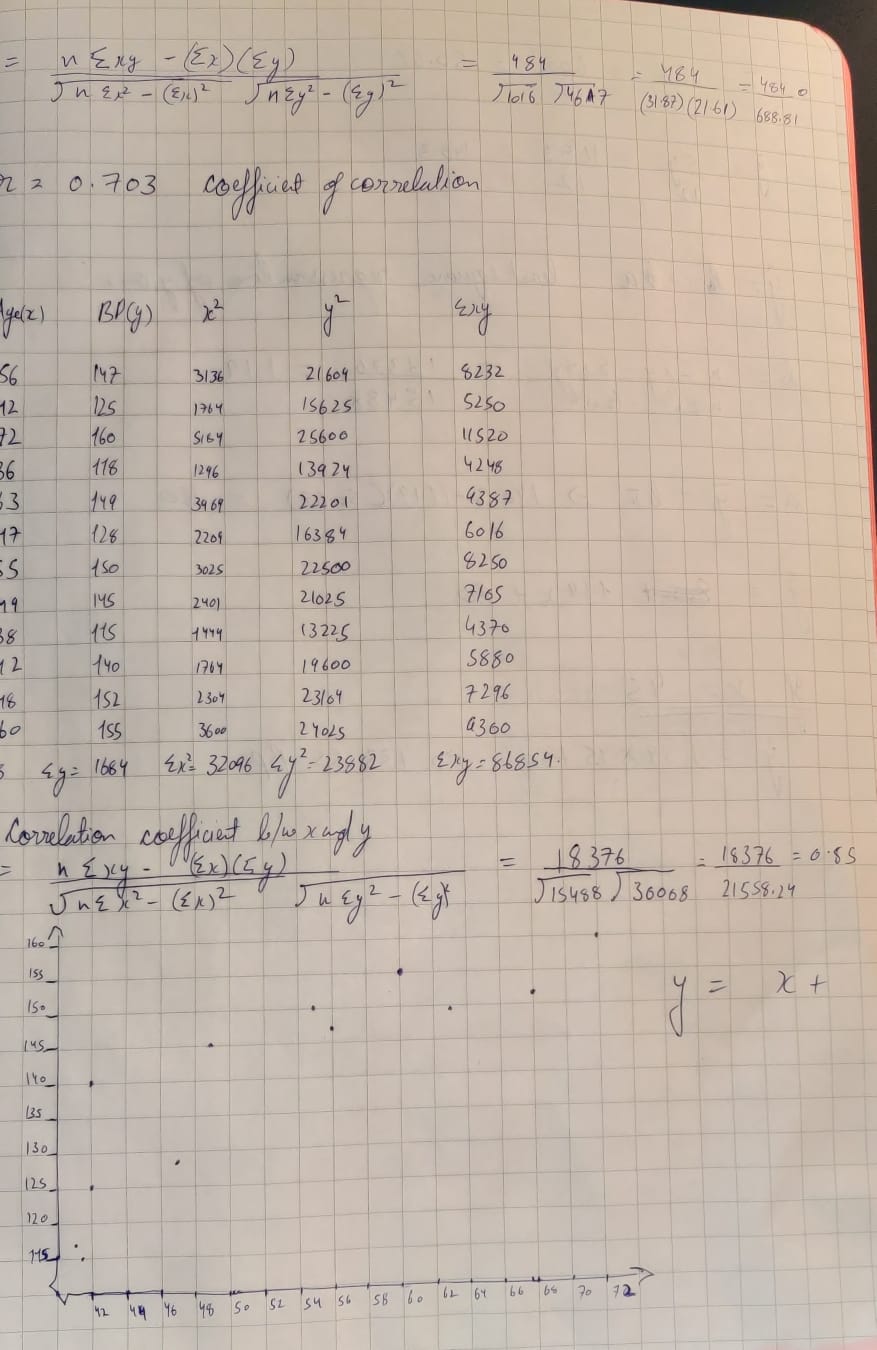 = n Σxy - (Σx)(Σy) / √nΣx² - (Σx)² √nΣy² - (Σy)² = 484 / √1016 √467 = 484 / (31.87)(21.61) = 484.0 / 688.81
r = 0.703 coefficient of correlation
Age(x) BP(y) x² y² Σxy
56 147 3136 21609 8232
42 125 1764 15625 5250
72 160 5184 25600 11520
36 118 1296 13924 4248
63 149 3969 22201 9387
47 128 2209 16384 6016
55 150 3025 22500 8250
49 145 2401 21025 7105
38 115 1444 13225 4370
42 140 1764 19600 5880
48 152 2304 23104 7296
60 155 3600 24025 9360
Σy = 1684 Σx² = 32096 Σy² = 23882 Σxy = 86854.
Correlation coefficient b/w x and y
= n Σxy - (Σx)(Σy) / √nΣx² - (Σx)² √nΣy² - (Σy)² = 18376 / √15488 √30068 = 18376 / 21558.24 = 0.85
160
155
y = x +
150
145
140
135
130
125
120
115
42 44 46 48 50 52 54 56 58 60 62 64 66 68 70 72